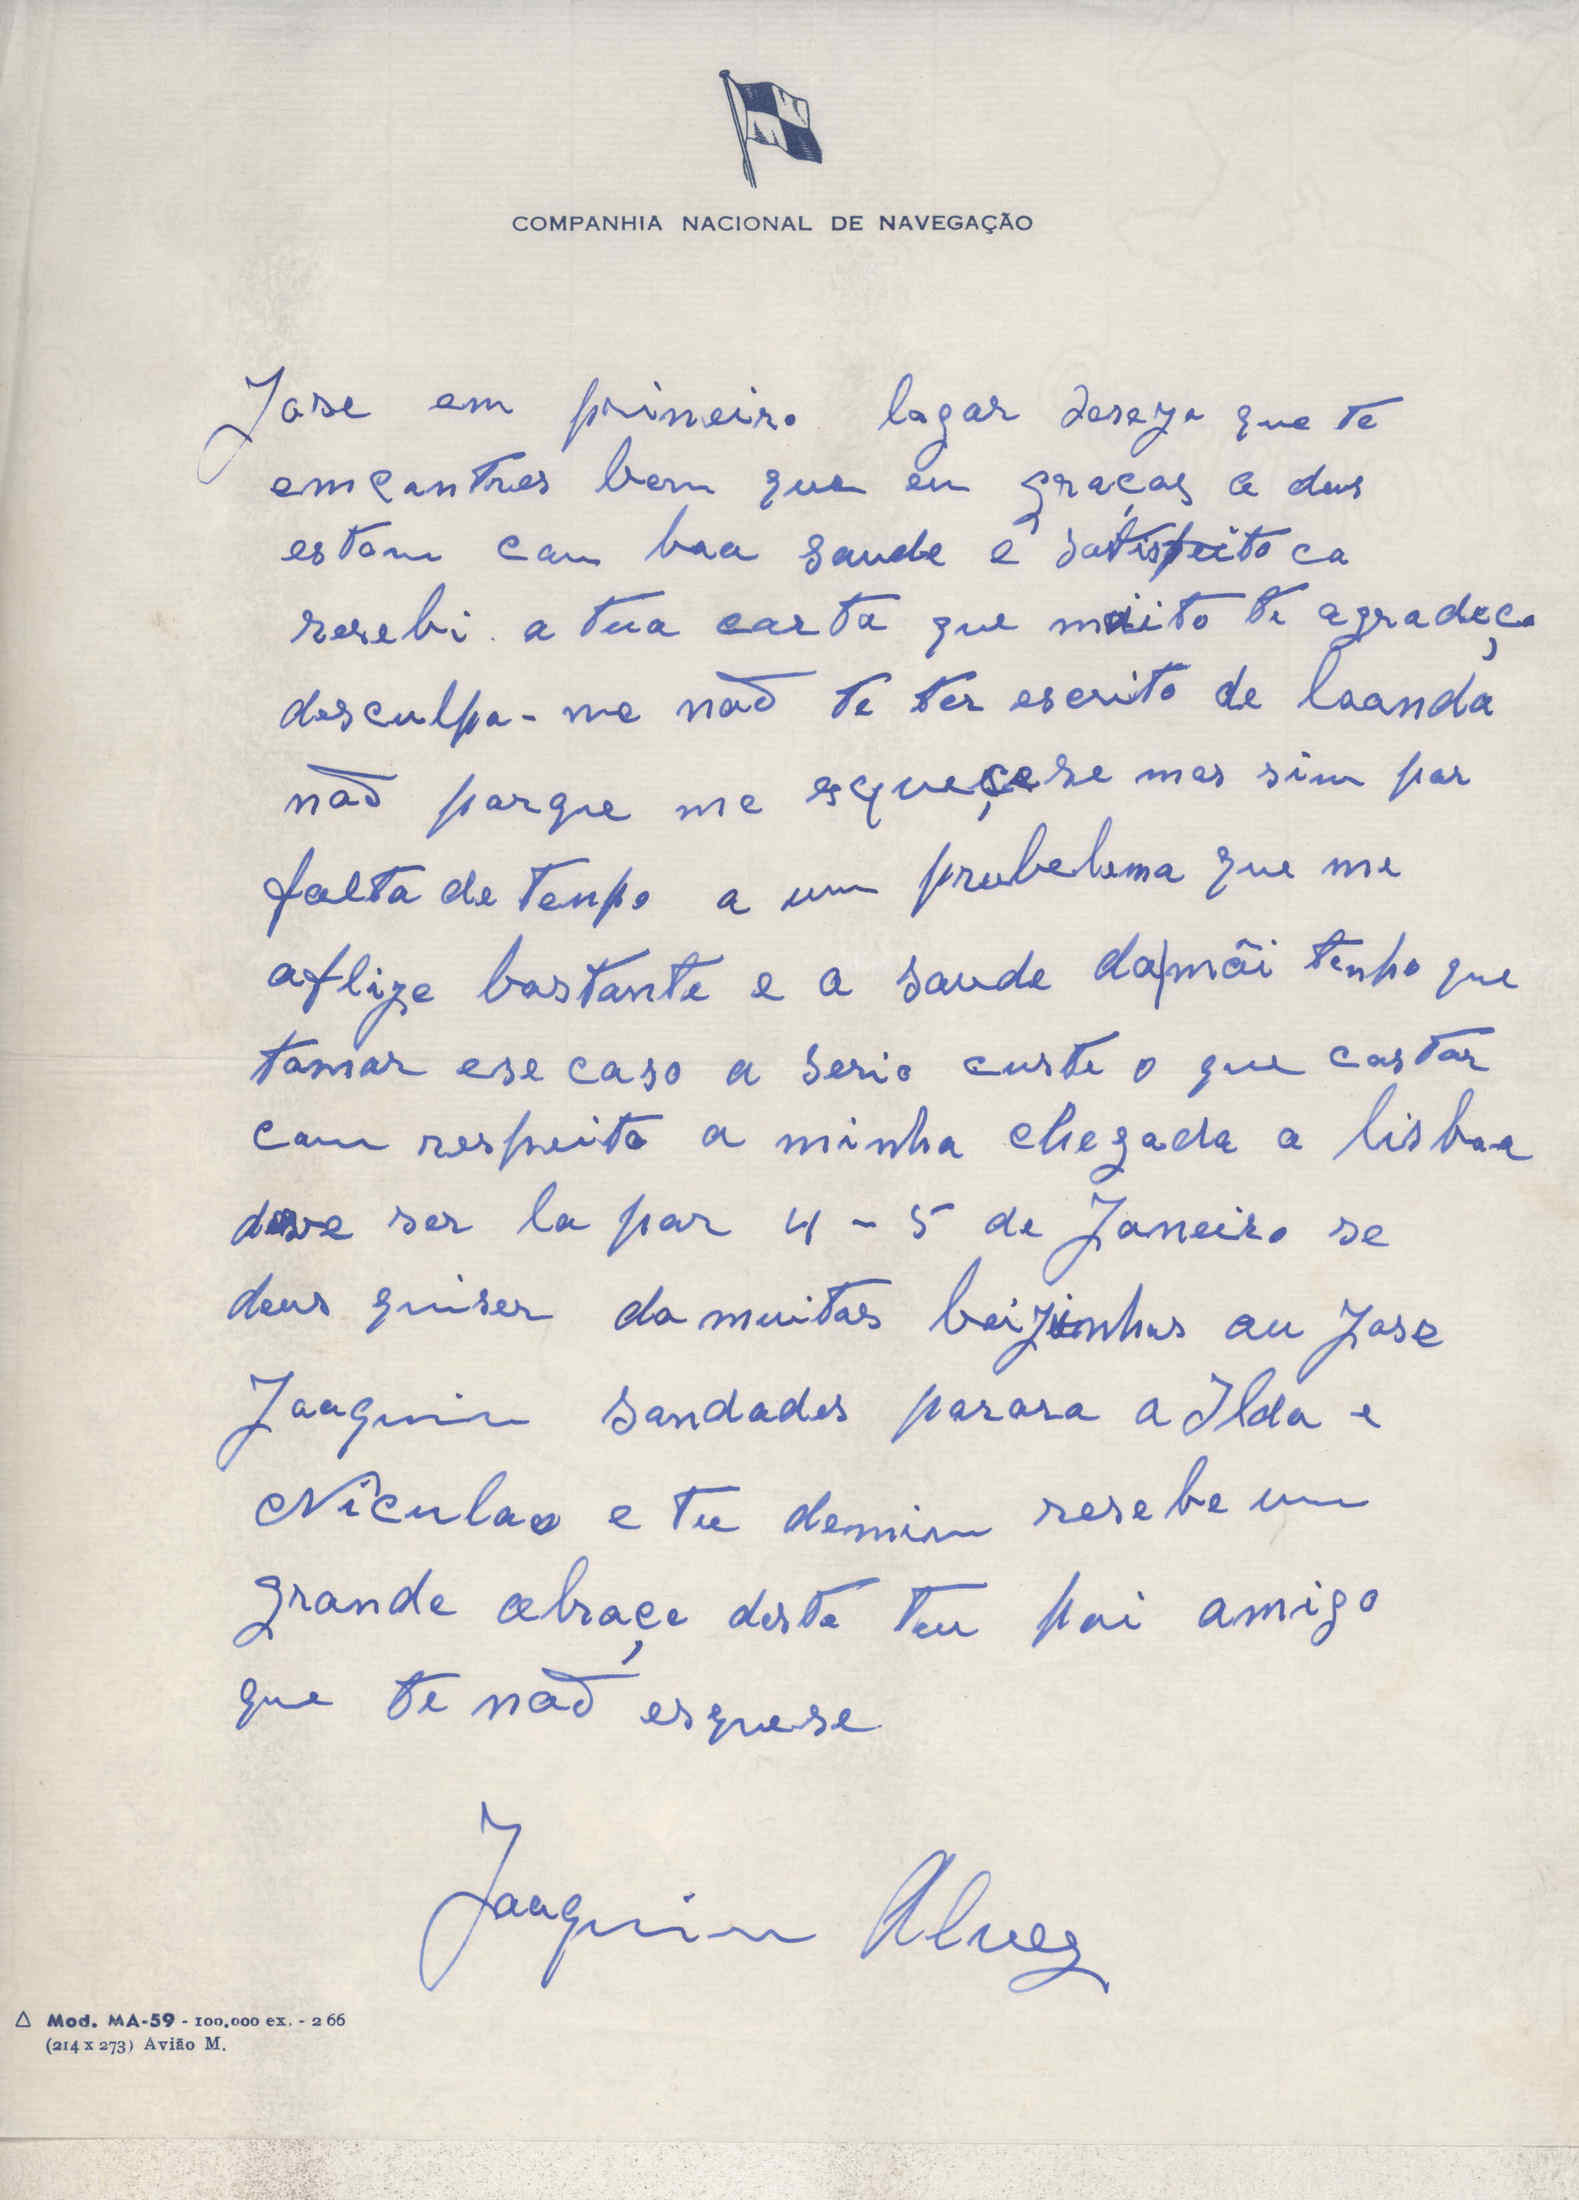 COMPANHIA NACIONAL DE NAVEGAÇÃO
Jose em primeiro logar deseja que te
emcontres bem que eu graças a deus
estou com boa saude e satisfeito ca
resebi a tua carta que muito te agradeço
desculpa-me não te ter escrito de loanda
não porque me esqueçese mas sim por
falta de tenpo a um prubelema que me
aflige bastante e a saude da mãi tenho que
tomar ese caso a serio custe o que costar
com respeito a minha chegada a lisboa
deve ser la par 4 - 5 de Janeiro se
deus quiser da muitos beijinhos au Jose
Joaquim saudades parara a Ilda e
Niculao e tu demim resebe um
grande abraço deste teu pai amigo
que te não esquese
Joaquim Alves
△ Mod. MA-59 - 100.000 ex. - 2 66
(214 x 273) Avião M.